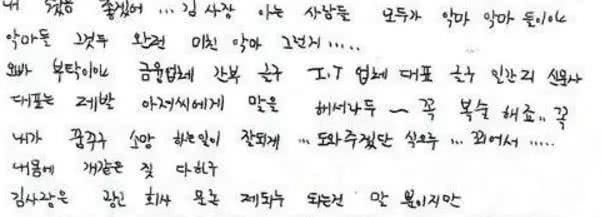 내 좋겠어... 김사장 아는 사람들 모두가 악마 악마들이야
악마들 그것두 완전 미친 악마 그런지.....
오빠 부탁이야 금융업체 간부 글구 I.T 업체 대표 글구 인간리 신문사
대표는 제발 아저씨에게 말을 해서나두 ~ 꼭 복술 해죠.. 꼭
내가 꿈꾸구 소망 하는일이 잘되게 ... 도와주겠단 식으루 ... 꾀어서 .....
내몸에 개같은 짓 다하구
김사장은 광고 회사 모른 제되누 되는건 말 뿐이지만